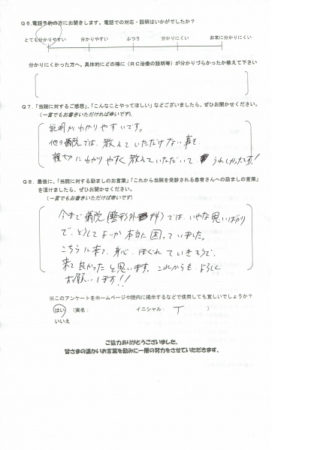 Q6.電話予約の方にお聞きします。電話での対応・説明はいかがでしたか?
とても分かりやすい 分かりやすい ふつう 分かりにくい 非常に分かりにくい
分かりにくかった方へ、具体的にどの様に(RC治療の説明等)が分かりづらかったか教えて下さい
Q7.「当院に対するご感想」、「こんなことやってほしい」などございましたら、ぜひお聞かせください。
(一言でもお書きいただければ幸いです)
説明がわかりやすいです。
他の病院では、教えていただけない事を
親切にわかりやすく教えていただいて うれしかったです!
Q8.最後に、「当院に対する励ましのお言葉」「これから当院を受診される患者さんへの励ましの言葉」
を頂けましたら、ぜひお聞かせください。
(一言でもお書きいただければ幸いです)
今まで病院(整形外科)では、いやな思いばかり
で、どうしてよいか本当に困っていました。
こちらに来て、身心、ほぐれていきそうで、
来て良かったと思います。これからもよろしく
お願いします!!
※このアンケートをホームページや院内に掲示するなどで使用しても宜しいでしょうか?
はい (実名: イニシャル: T )
いいえ
ご協力ありがとうございました。
皆さまの温かいお言葉を励みに一層の努力をさせていただきます。